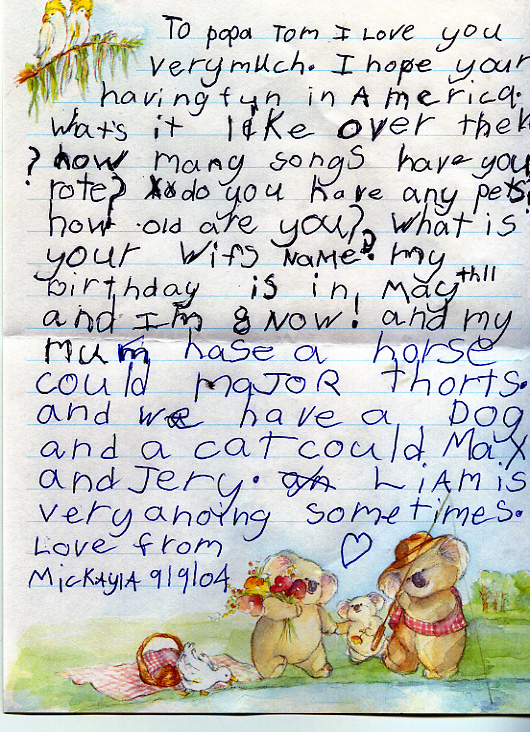 To popa Tom I Love you
very much. I hope your
having fun in America.
wat's it like over ther
? how many songs have you
rote? do you have any pets?
how old are you? What is
your wifs NaMe? my
birthday is in, May th11
and I'm 8 NOW! and my
mum hase a horse
could MaJOR thorts.
and we have a DOg
and a cat could Max
and Jery. LiAM is
very anoing sometimes.
Love from
MicKAylA 9/9/04